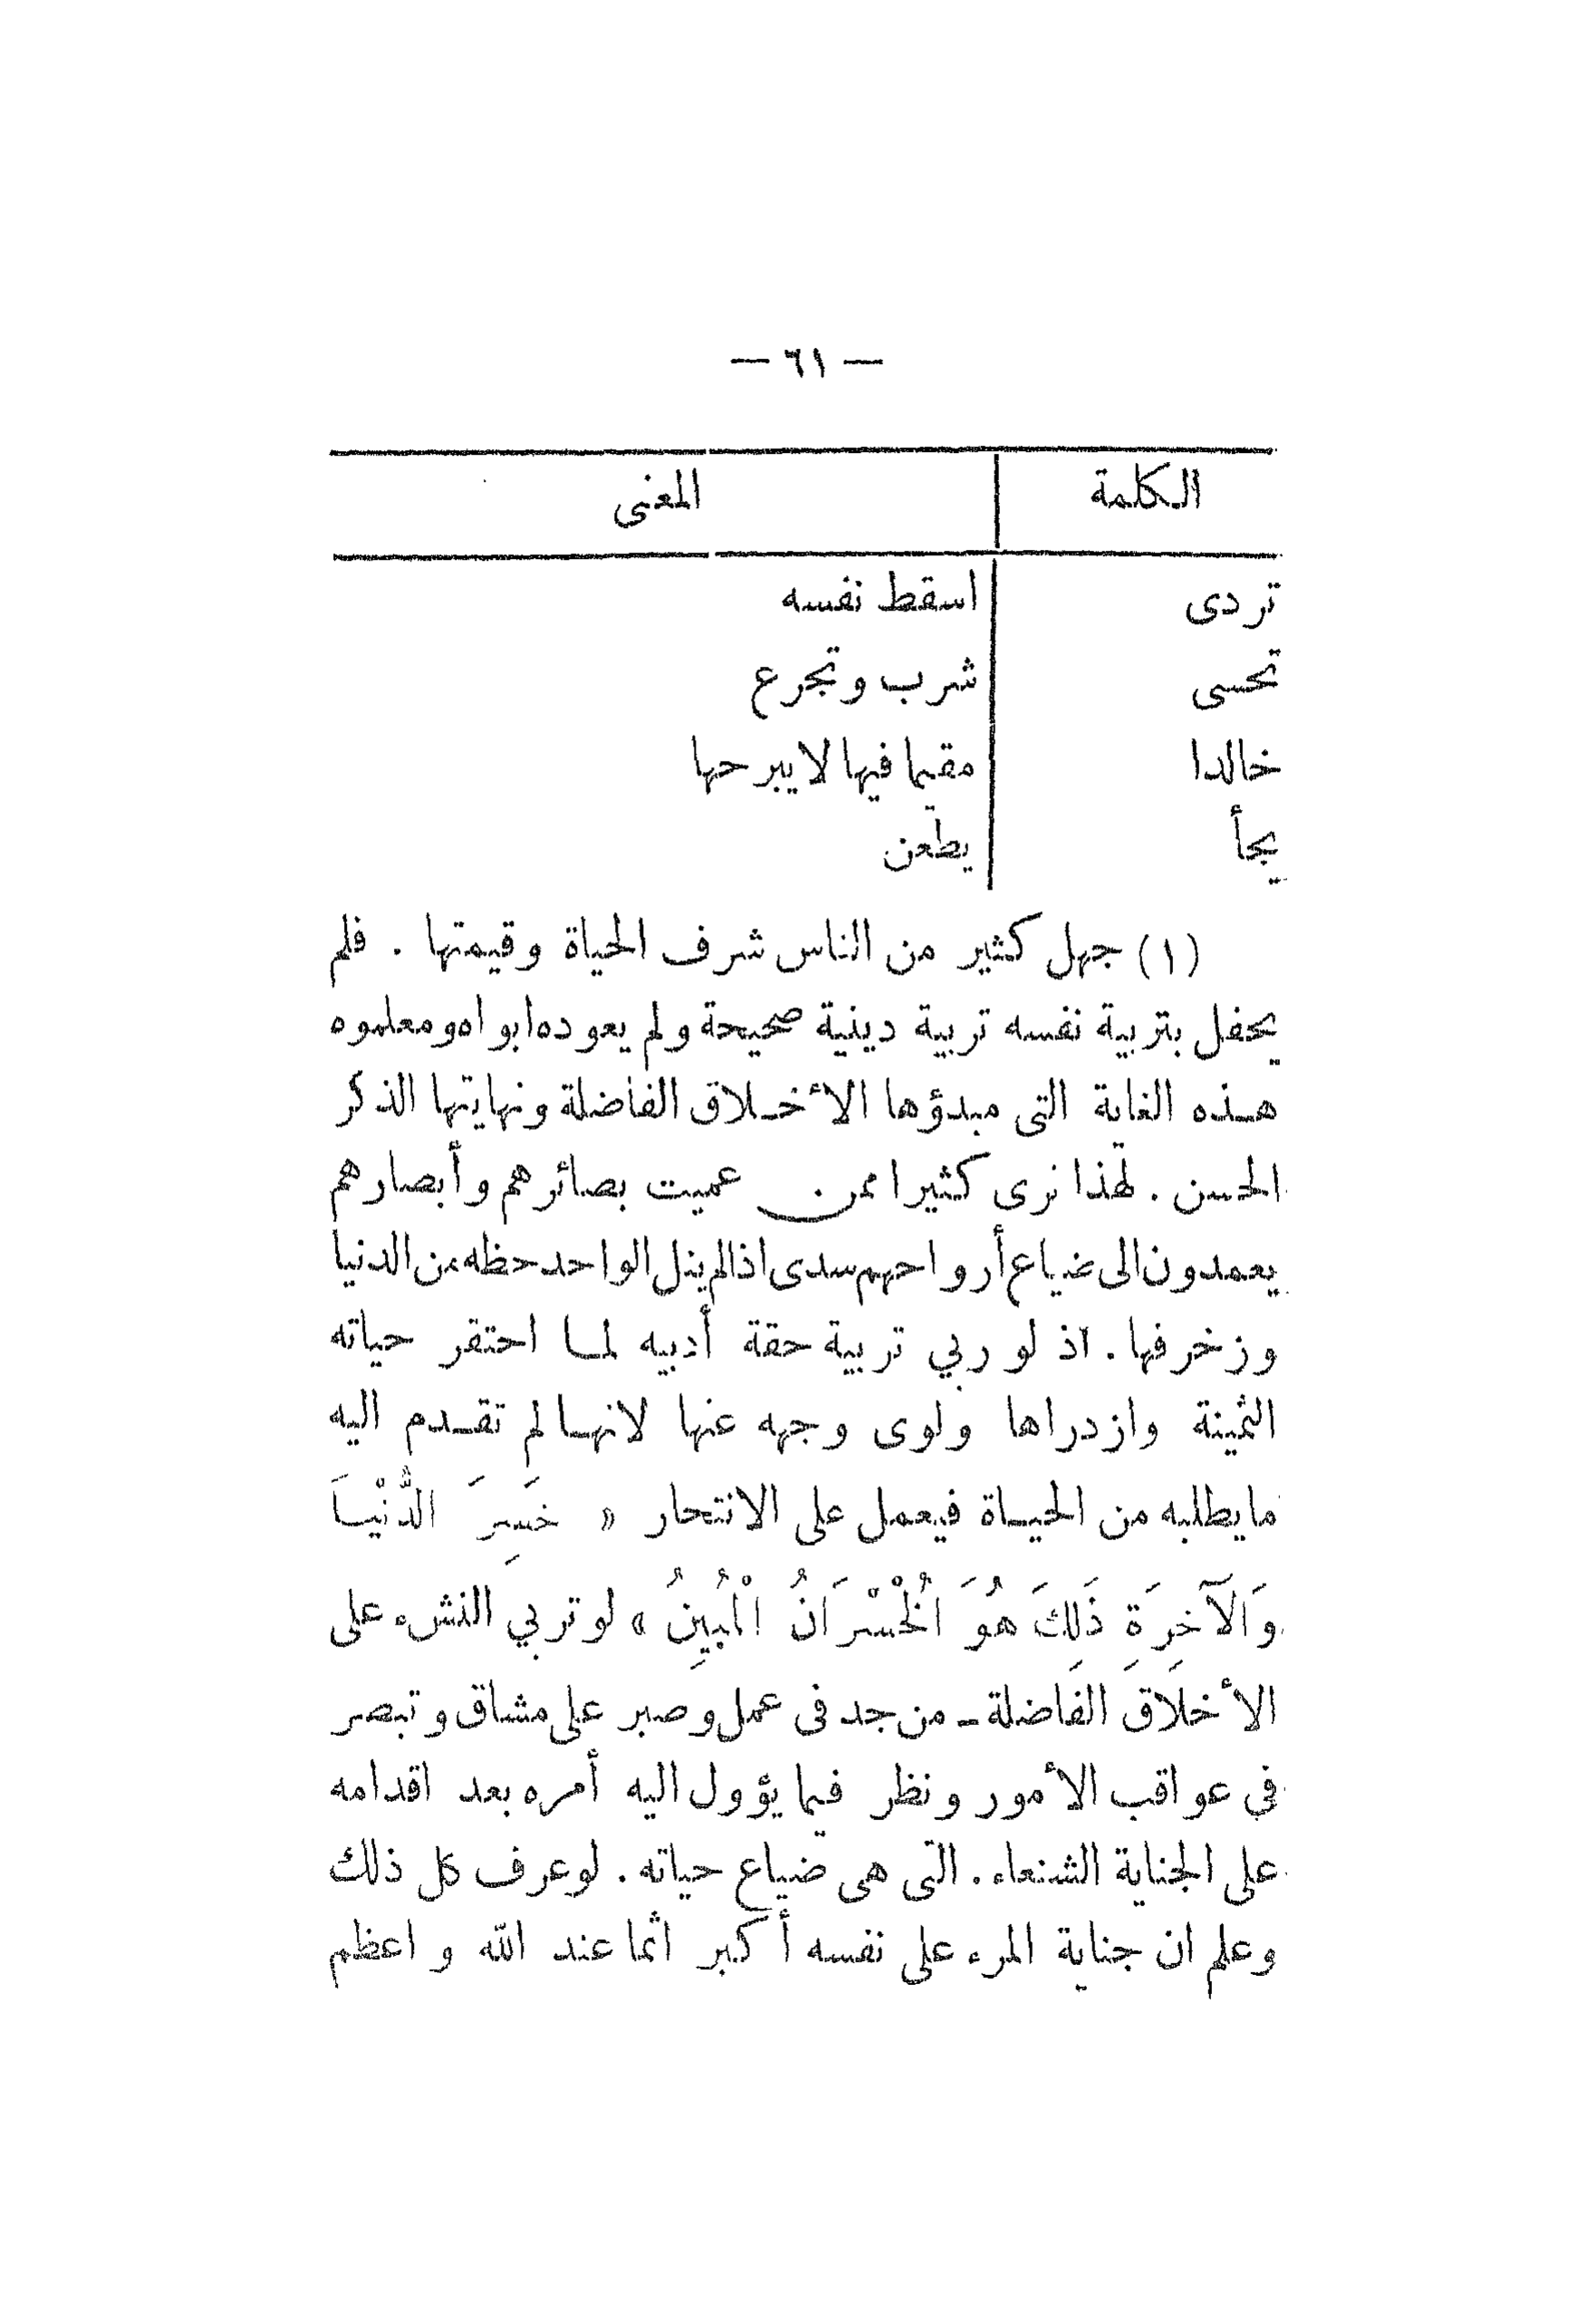 — ٦١ —
الكلمة المعنى
تردى اسقط نفسه
تحسى شرب وتجرع
خالدا مقيما فيها لا يبرحها
يجأ يطعن
(١) جهل كثير من الناس شرف الحياة وقيمتها . فلم
يحفل بتربية نفسه تربية دينية صحيحة ولم يعوده ابواه ومعلموه
هذه الغاية التى مبدؤها الأخلاق الفاضلة ونهايتها الذكر
الحسن . لهذا نرى كثيرا ممن عميت بصائرهم وأبصارهم
يعمدون الى ضياع أرواحهم سدى اذا لم ينل الواحد حظه من الدنيا
وزخرفها . اذ لو ربي تربية حقة أدبيه لما احتقر حياته
الثمينة وازدراها ولوى وجهه عنها لانها لم تقدم اليه
ما يطلبه من الحياة فيعمل على الانتحار « خَسِرَ الدُّنْيَا
وَالْآخِرَةَ ذَلِكَ هُوَ الْخُسْرَانُ الْمُبِينُ » لو تربي النشء على
الأخلاق الفاضلة ـ من جد فى عمل وصبر على مشاق وتبصر
في عواقب الأمور ونظر فيما يؤول اليه أمره بعد اقدامه
على الجناية الشنعاء . التى هى ضياع حياته . لو عرف كل ذلك
وعلم ان جناية المرء على نفسه أكبر اثما عند الله واعظم